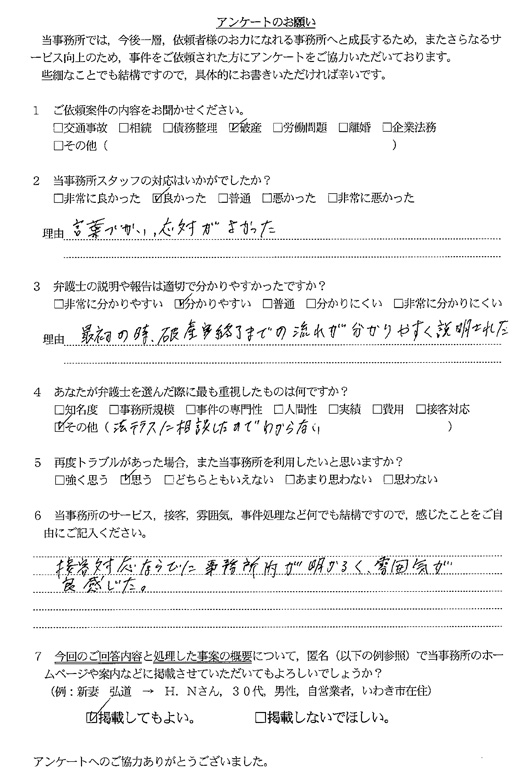 アンケートのお願い
当事務所では，今後一層，依頼者様のお力になれる事務所へと成長するため，またさらなるサ
ービス向上のため，事件をご依頼された方にアンケートをご協力いただいております。
些細なことでも結構ですので，具体的にお書きいただければ幸いです。
1 ご依頼案件の内容をお聞かせください。
□交通事故 □相続 □債務整理 ☑破産 □労働問題 □離婚 □企業法務
□その他（ ）
2 当事務所スタッフの対応はいかがでしたか？
□非常に良かった ☑良かった □普通 □悪かった □非常に悪かった
理由 言葉づかい，応対がよかった
3 弁護士の説明や報告は適切で分かりやすかったですか？
□非常に分かりやすい ☑分かりやすい □普通 □分かりにくい □非常に分かりにくい
理由 最初の時、破産 終了までの流れが分かりやすく説明された
4 あなたが弁護士を選んだ際に最も重視したものは何ですか？
□知名度 □事務所規模 □事件の専門性 □人間性 □実績 □費用 □接客対応
☑その他（法テラスに相談したのでわからない ）
5 再度トラブルがあった場合，また当事務所を利用したいと思いますか？
□強く思う ☑思う □どちらともいえない □あまり思わない □思わない
6 当事務所のサービス，接客，雰囲気，事件処理など何でも結構ですので，感じたことをご自
由にご記入ください。
接客対応ならびに事務所内が明かるく、雰囲気が
良 感じた。
7 今回のご回答内容と処理した事案の概要について，匿名（以下の例参照）で当事務所のホー
ムページや案内などに掲載させていただいてもよろしいでしょうか？
（例：新妻 弘道 → H．Nさん，30代，男性，自営業者，いわき市在住）
☑掲載してもよい。 □掲載しないでほしい。
アンケートへのご協力ありがとうございました。